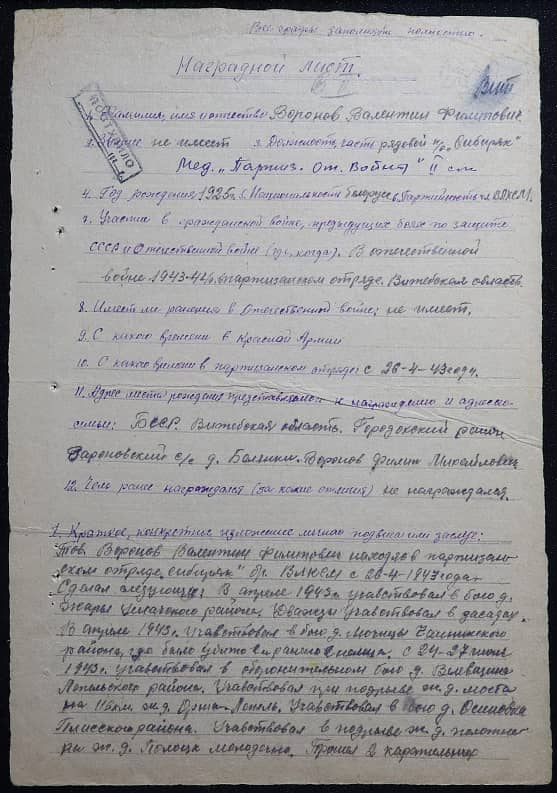 Все графы заполнять полностью.
Наградной лист.
1. Фамилия, имя, отчество Воронов Валентин Филипович.
2. Звание не имеет 3. Должность, часть рядовой п/о „Сибиряк"
Мед. „Партиз. От. Войны" II ст
4. Год рождения 1925г. 5. Национальность белорус 6. Партийность чл. ВЛКСМ.
7. Участие в гражданской войне, предыдущих боях по защите
СССР и Отечественной войне (где, когда). В отечественной
войне 1943-44г. в партизанском отряде. Витебская область.
8. Имеет ли ранения в Отечественной войне; не имеет.
9. С какого времени в Красной Армии
10. С какого времени в партизанском отряде: с 26-4-43 году.
11. Адрес места рождения представляемого к награждению и адрес его
семьи: БССР. Витебская область. Городокский район
с/с д. Воронов Филип Михайлович
12. Чем ранее награждался (за какие отличия) не награждался.
1. Краткое, конкретное изложение личного подвига или заслуг:
Тов. Воронов Валентин Филипович находясь в партизан-
ском отряде „Сибиряк" бр. ВЛКСМ с 26-4-1943 года
Сделал следующее: В апреле 1943г. учавствовал в бою д.
Ушачского района. Дважды учавствовал в засадах.
В апреле 1943г. учавствовал в бою д. Чашникского
района, где было убито и ранено немца. С 24-27 июня
1943г. учавствовал в оборонительном бою д.
Лепельского района. Учавствовал при подрыве ж.д. моста
на 116 км ж.д. Орша-Лепель. Учавствовал в бою д. Осиновка
Плисского района. Учавствовал в подрыве ж.д. полотна
на ж.д. Полоцк Молодечно. Прошел 2 карательных